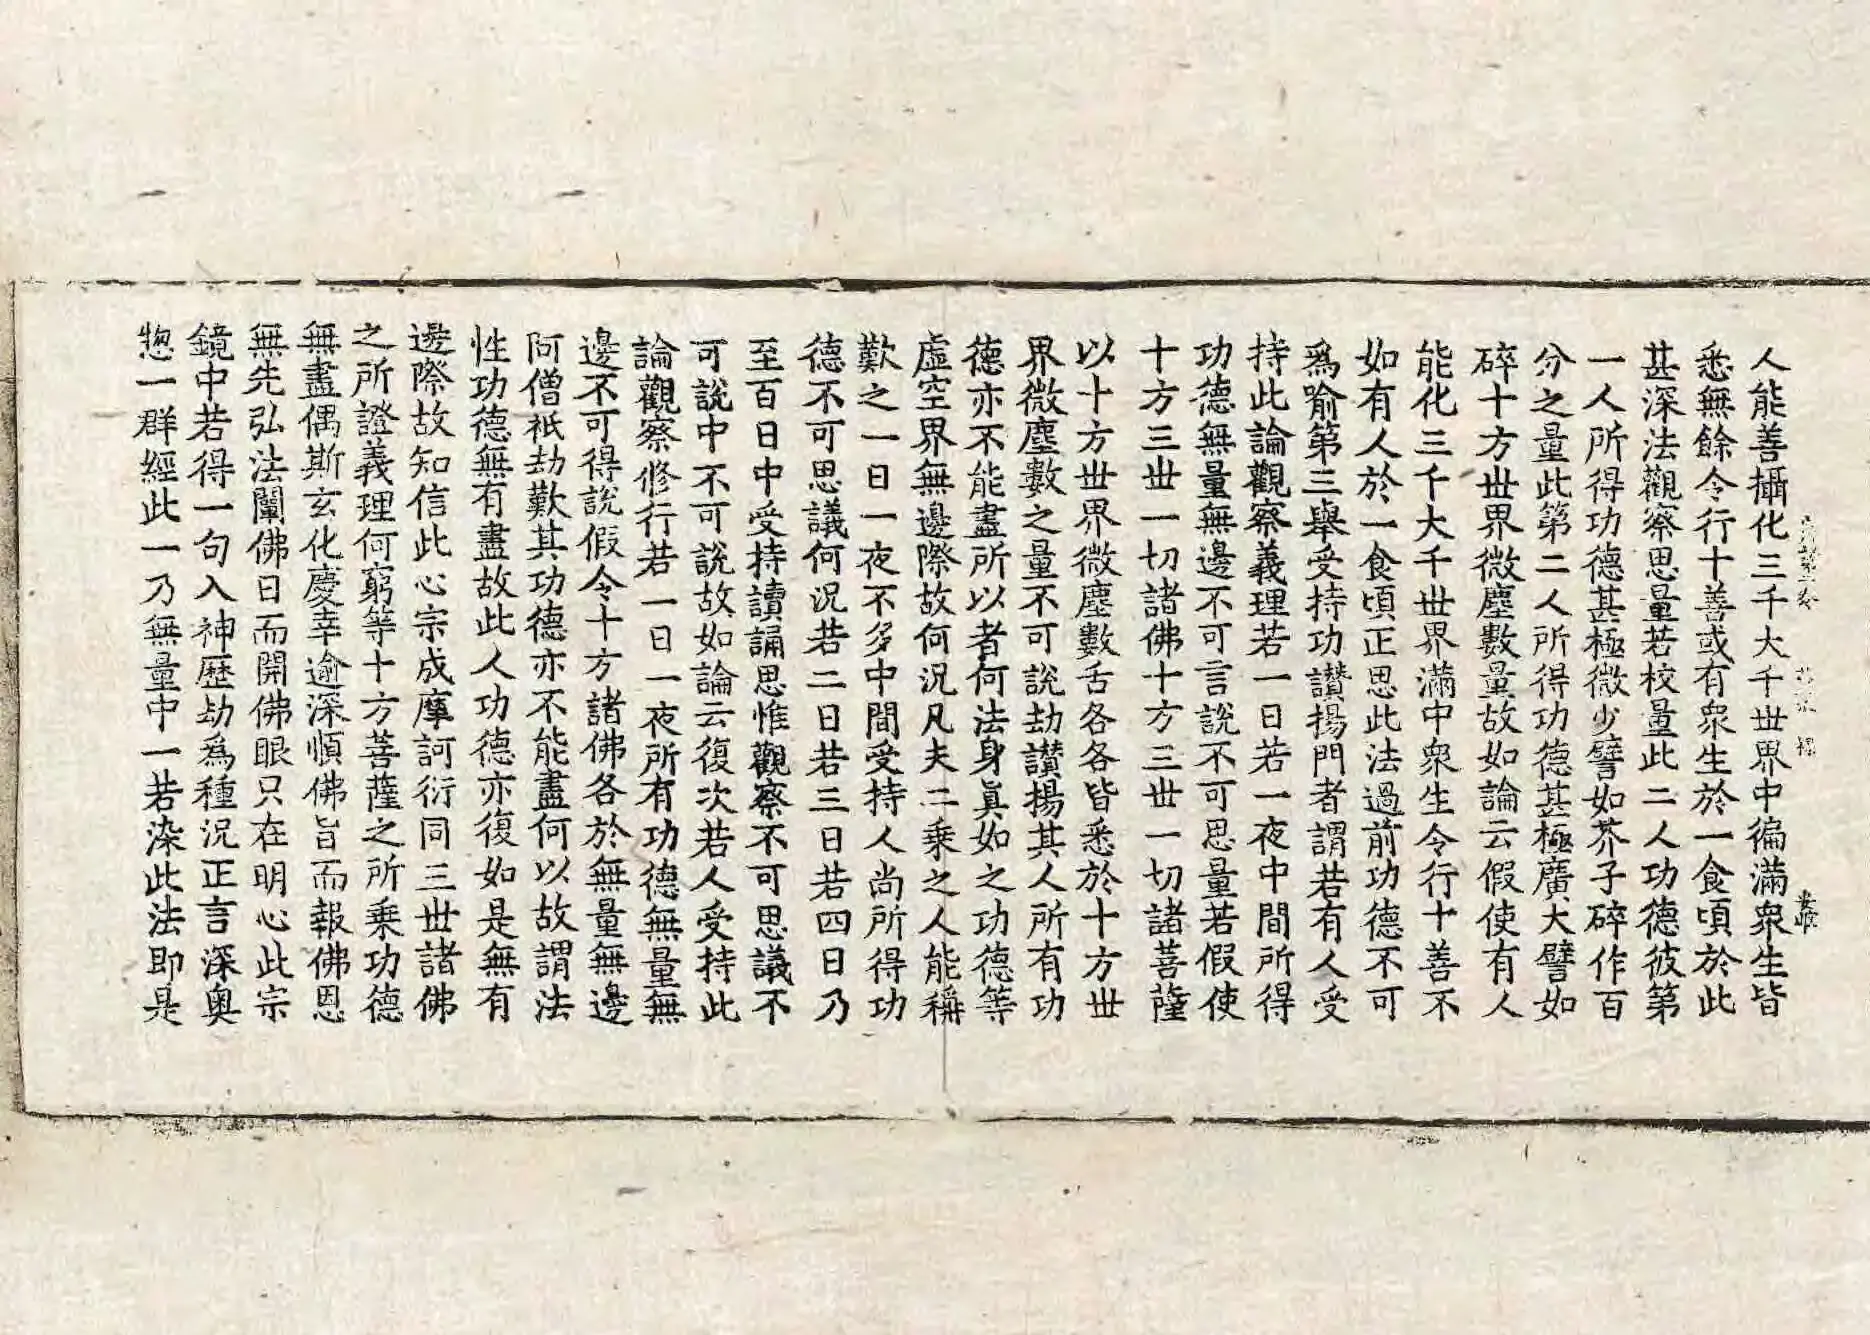 人能善攝化三千大千世界中徧滿衆生皆
悉無餘令行十善或有衆生於一食頃於此
甚深法觀察思量若校量此二人功德彼第
一人所得功德甚極微少譬如芥子碎作百
分之量此第二人所得功德甚極廣大譬如
碎十方世界微塵數量故如論云假使有人
能化三千大千世界滿中衆生令行十善不
如有人於一食頃正思此法過前功德不可
爲喻第三舉受持功讃揚門者謂若有人受
持此論觀察義理若一日若一夜中間所得
功德無量無邊不可言說不可思量若假使
十方三世一切諸佛十方三世一切諸菩薩
以十方世界微塵數舌各各皆悉於十方世
界微塵數之量不可說劫讃揚其人所有功
德亦不能盡所以者何法身眞如之功德等
虛空界無邊際故何況凡夫二乘之人能稱
歎之一日一夜不多中間受持人尚所得功
德不可思議何況若二日若三日若四日乃
至百日中受持讀誦思惟觀察不可思議不
可說中不可說故如論云復次若人受持此
論觀察修行若一日一夜所有功德無量無
邊不可得說假令十方諸佛各於無量無邊
阿僧祇劫歎其功德亦不能盡何以故謂法
性功德無有盡故此人功德亦復如是無有
邊際故知信此心宗成摩訶衍同三世諸佛
之所證義理何窮等十方菩薩之所乘功德
無盡偶斯玄化慶幸逾深順佛旨而報佛恩
無先弘法闡佛日而開佛眼只在明心此宗
鏡中若得一句入神歷劫爲種況正言深奥
惣一群經此一乃無量中一若染此法即是